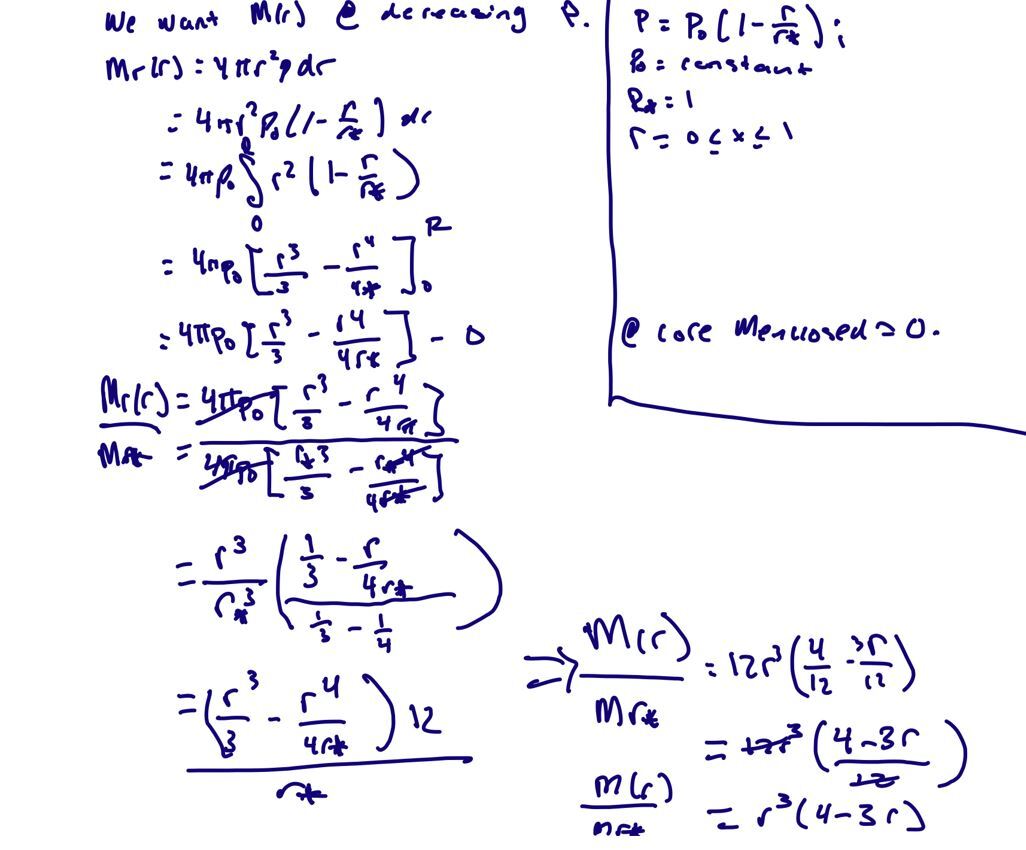 We want M(r) @ decreasing ρ.
Mr(r) = 4πr²ρdr
= 4πr²ρ₀(1 - r/r*) dr
= 4πρ₀ ∫₀ᴿ r² (1 - r/r*)
= 4πρ₀ [r³/3 - r⁴/4*]₀ᴿ
= 4πρ₀ [r³/3 - r⁴/4r*] - 0
Mr(r)/Mr* = 4πρ₀ [r³/3 - r⁴/4r*]
= 4πρ₀ [r*³/3 - r*⁴/4r*]
= r³/r*³ ((1/3 - r/4r*)/(1/3 - 1/4))
= (r³/3 - r⁴/4r*) 12 / r*
ρ = ρ₀ (1 - r/r*);
ρ₀ = constant
R* = 1
r = 0 ≤ x ≤ 1
@ core Menclosed = 0.
⇒ M(r)/Mr* = 12r³ (4/12 - 3r/12)
= 12r³ ((4-3r)/12)
m(r)/mr* = r³(4-3r)